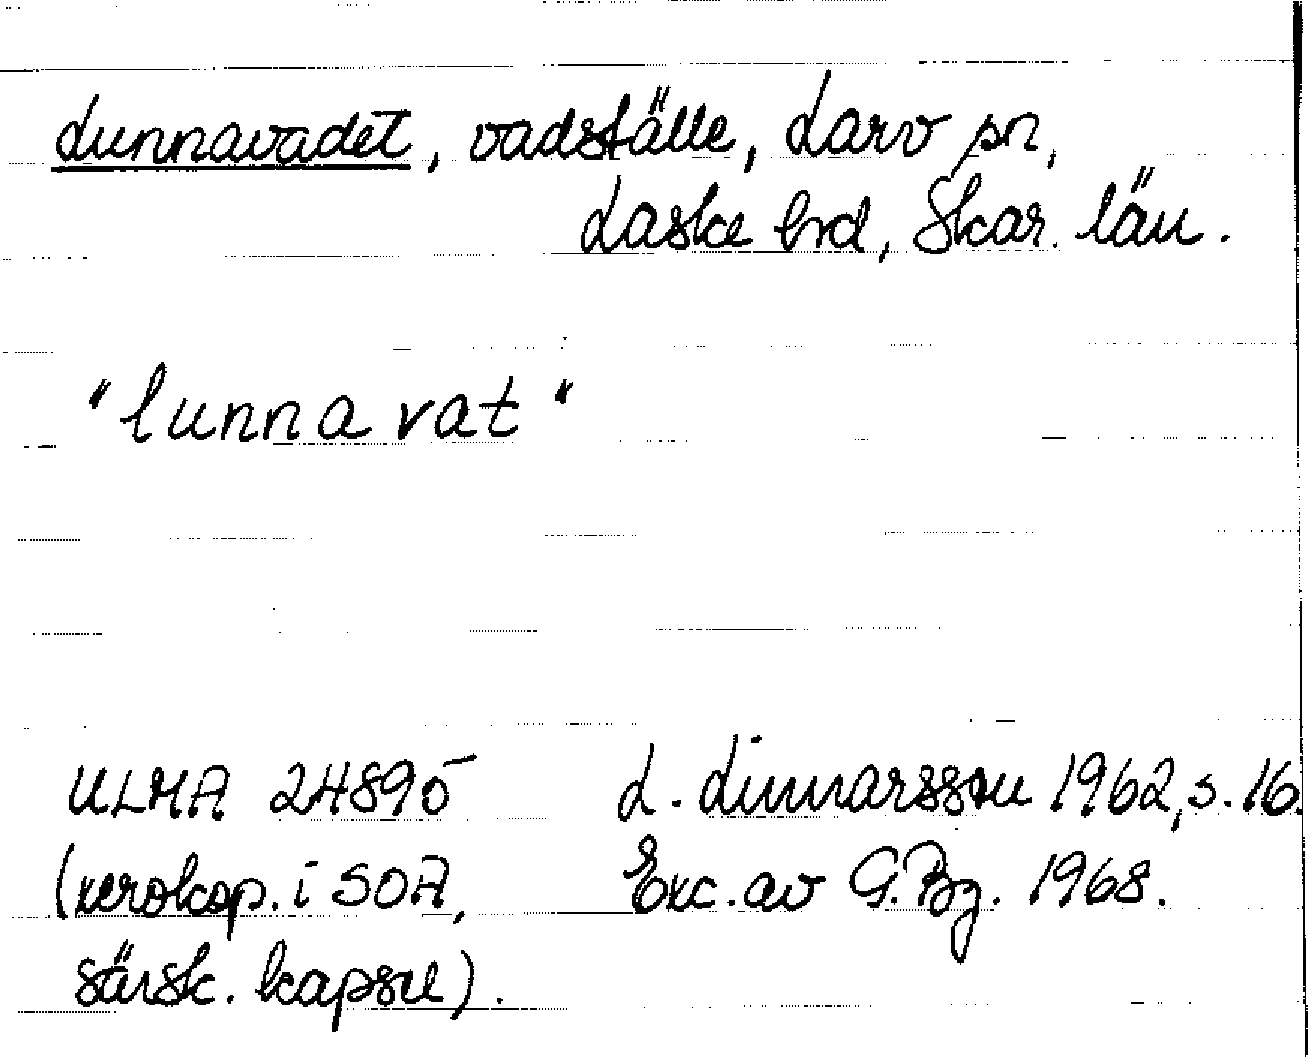 Lunnavadet, vadställe, Larv sn,
Laske hd, Skar. län.
"lunna vat"
ULMA 24895 L. Linnarsson 1962, s. 16.
(xerokop. i SOA, Exc. av G. Bg. 1968.
särsk. kapsel).